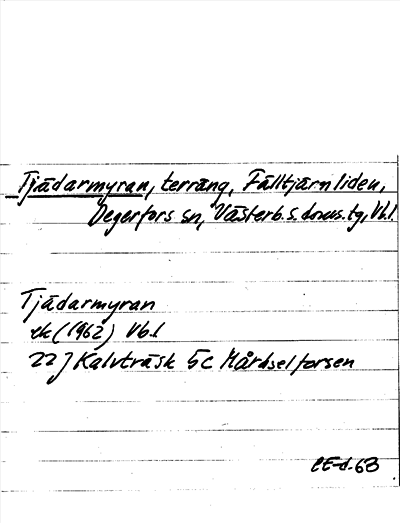 Tjädarmyran, terräng, Fälltjärnliden,
Degerfors sn, Västerb. s. doms. tg, Vb.l.
Tjädarmyran
ek (1962) Vb.l
22 J Kalvträsk 5c Mårdselforsen
CE-d. 63